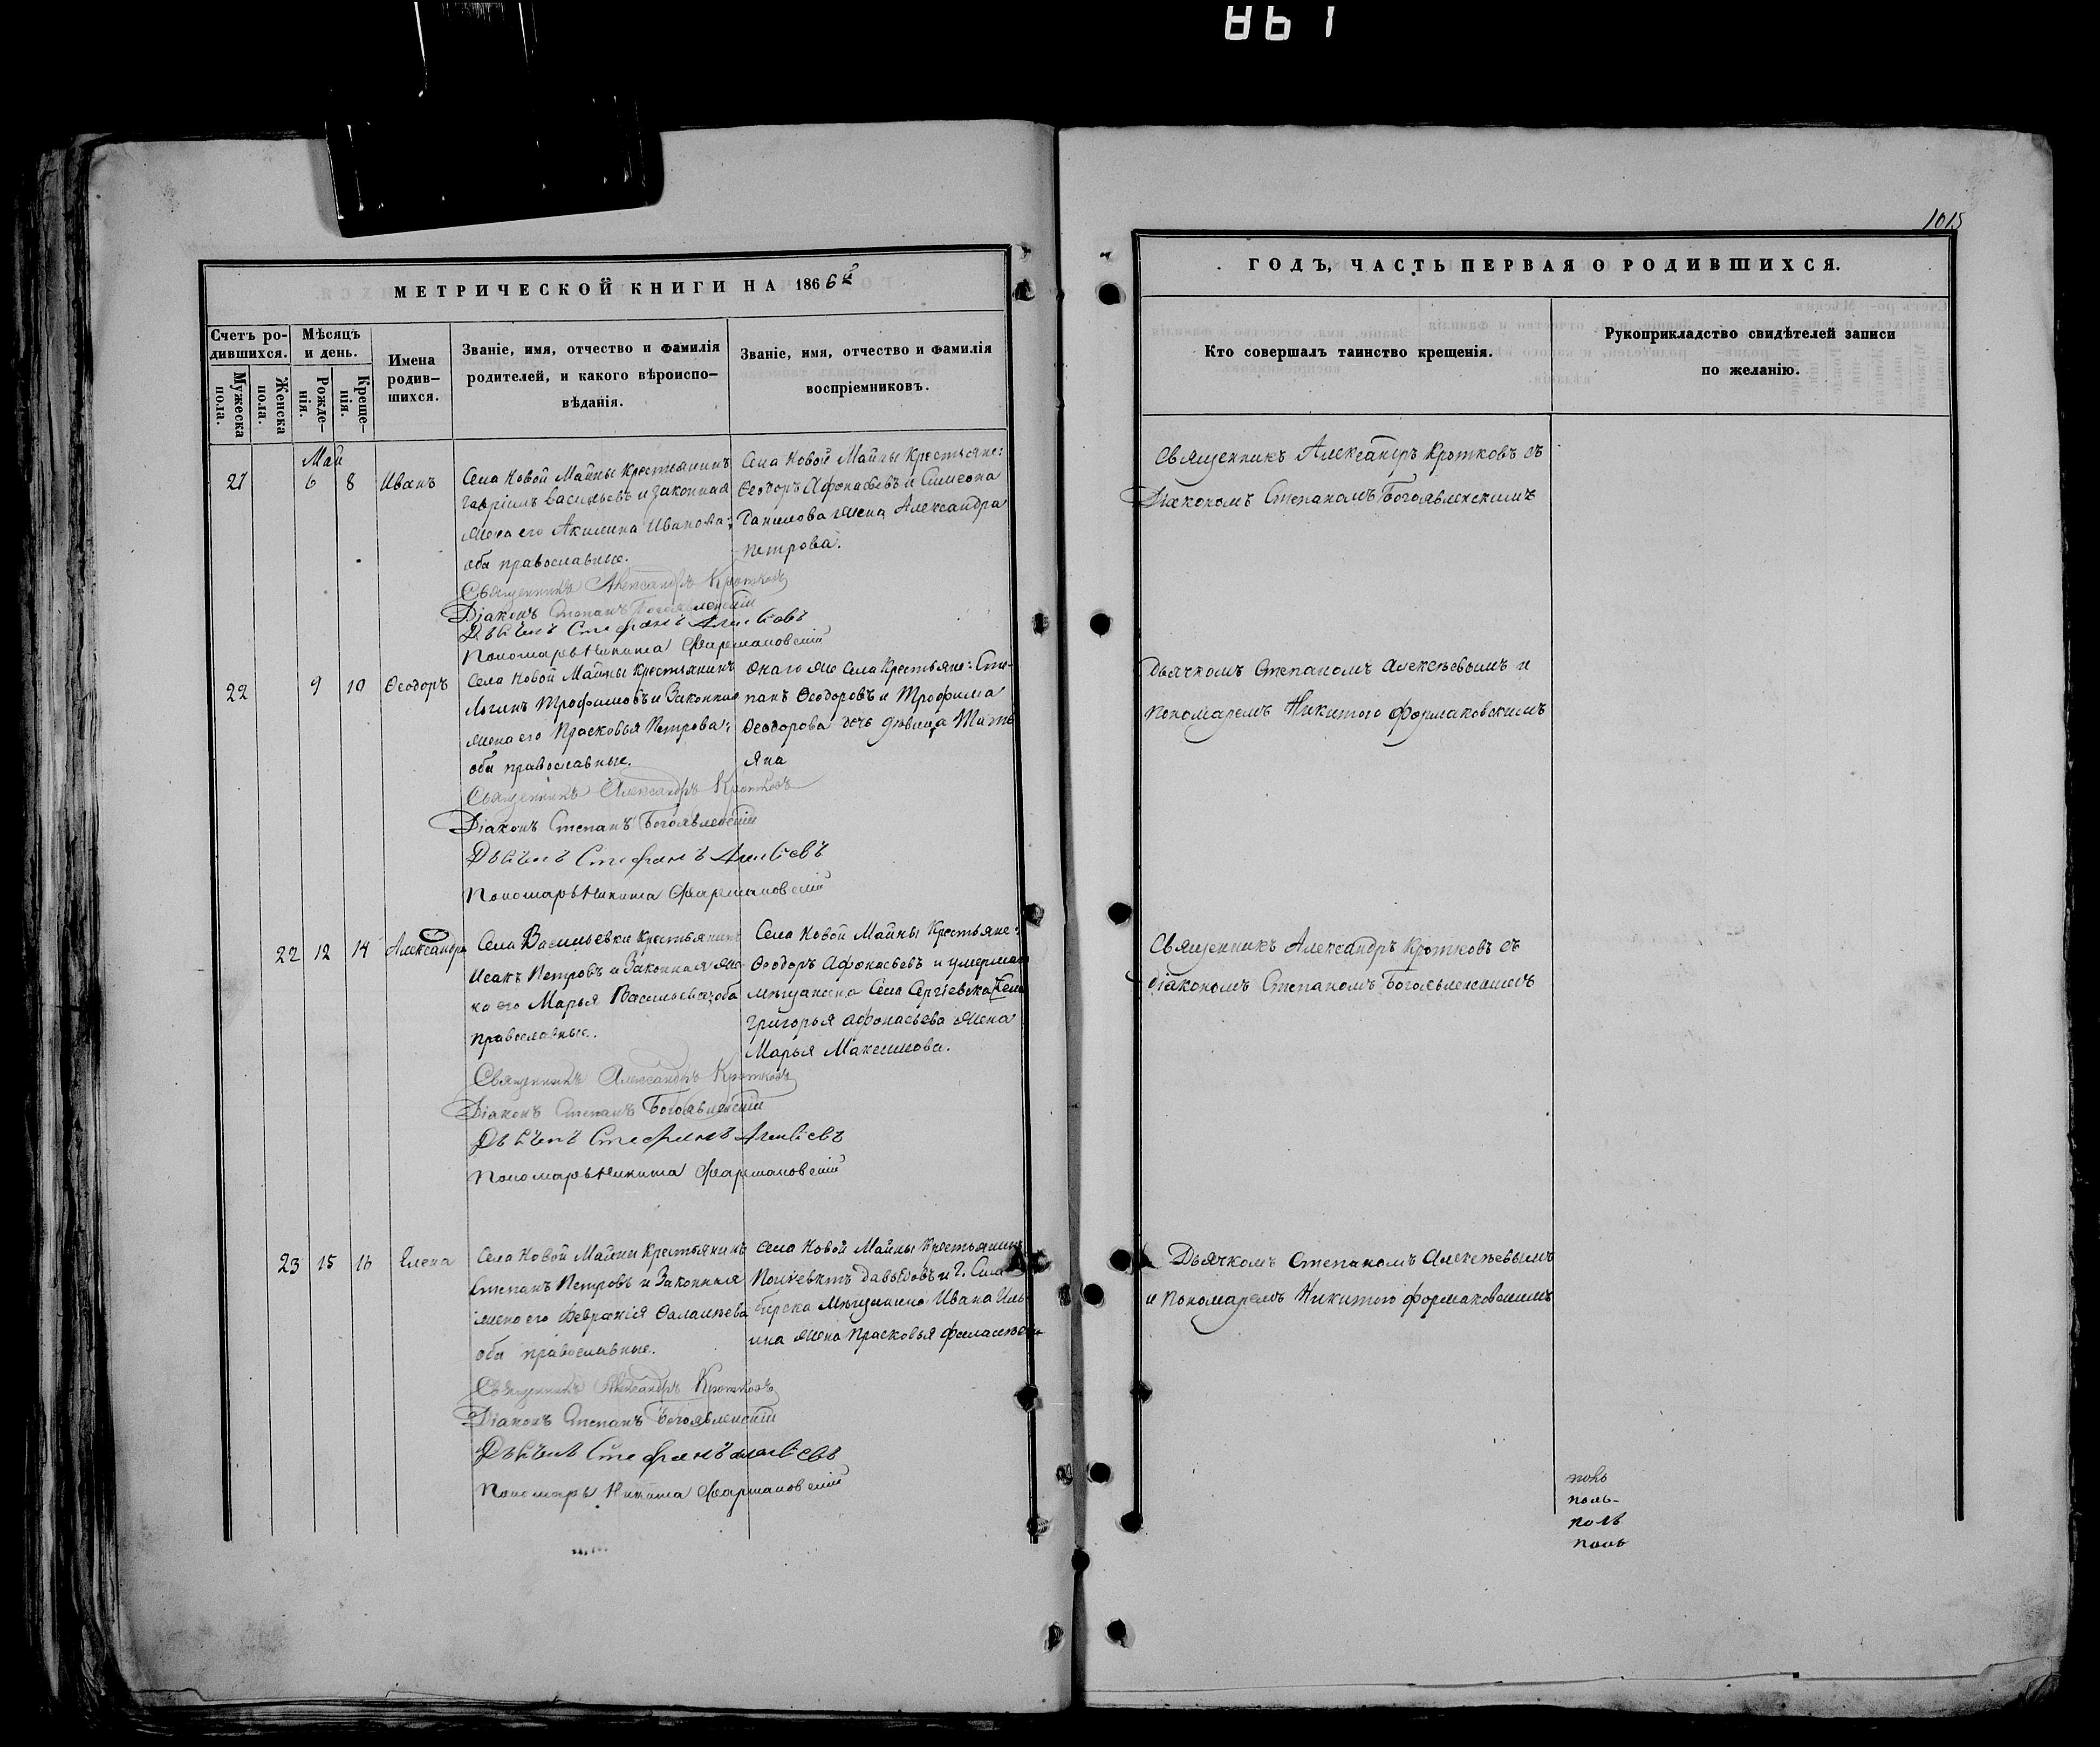 198
1015
МЕТРИЧЕСКОЙ КНИГИ НА 1866й
ГОДЪ, ЧАСТЬ ПЕРВАЯ О РОДИВШИХСЯ.
Счетъ ро-
дившихся.
Мужеска
пола.
Женска
пола.
Мѣсяцъ
и день.
Рожде-
нія.
Креще-
нія.
Имена
родив-
шихся.
Званіе, имя, отчество и фамилія
родителей, и какого вѣроиспо-
вѣданія.
Званіе, имя, отчество и фамилія
воспріемниковъ.
Кто совершалъ таинство крещенія.
Рукоприкладство свидѣтелей записи
по желанію.
Май
21 6 8 Иванъ
Села Новой Майны Крестьянинъ
Гавріилъ Васильевъ и законная
жена его Акилина Иванова;
оба православные.
Священникъ Александръ Кротковъ
Діаконъ Степанъ Богоявленскій
Дьячекъ Стефанъ Алексѣевъ
Пономарь Никита Фармаковскій
Села Новой Майны Крестьяне:
Ѳеодоръ Афонасьевъ и Симеона
Данилова жена Александра
Петрова.
Священникъ Александръ Кротковъ съ
Діакономъ Степаномъ Богоявленскимъ
22 9 10 Ѳеодоръ
Села Новой Майны Крестьянинъ
Логинъ Трофимовъ и Законная
жена его Прасковья Петрова;
оба православные.
Священникъ Александръ Кротковъ
Діаконъ Степанъ Богоявленскій
Дьячекъ Стефанъ Алексѣевъ
Пономарь Никита Фармаковскій
Онаго же Села Крестьяне: Сте-
панъ Ѳеодоровъ и Трофима
Ѳеодорова дочь дѣвица Тать
яна
Дьячкомъ Степаномъ Алексѣевымъ и
Пономаремъ Никитою Формаковскимъ
22 12 14 Александра
Села Васильевки Крестьянинъ
Исакъ Петровъ и Законная же-
на его Марья Васильева; оба
православные.
Священникъ Александръ Кротковъ
Діаконъ Степанъ Богоявленскій
Дьячекъ Стефанъ Алексѣевъ
Пономарь Никита Фармаковскій
Села Новой Майны Крестьяне:
Ѳеодоръ Афонасьевъ и умершаго
мѣщанина Села Сергіевска
Григорья Афонасьева жена
Марья Максимова.
Священникъ Александръ Кротковъ съ
діакономъ Степаномъ Богоявленскимъ
23 15 16 Елена
Села Новой Майны Крестьянинъ
Степанъ Петровъ и Законная
жена его Февронія Ѳалалѣева
оба православные.
Священникъ Александръ Кротковъ
Діаконъ Степанъ Богоявленскій
Дьячекъ Стефанъ Алексѣевъ
Пономарь Никита Фармаковскій
Села Новой Майны Крестьянинъ
Полиевктъ Давыдовъ и г. Сим
бирска Мѣщанина Ивана Иль-
ина жена Прасковья Фалалѣева
Дьячкомъ Степаномъ Алексѣевымъ
и Пономаремъ Никитою Формаковскимъ